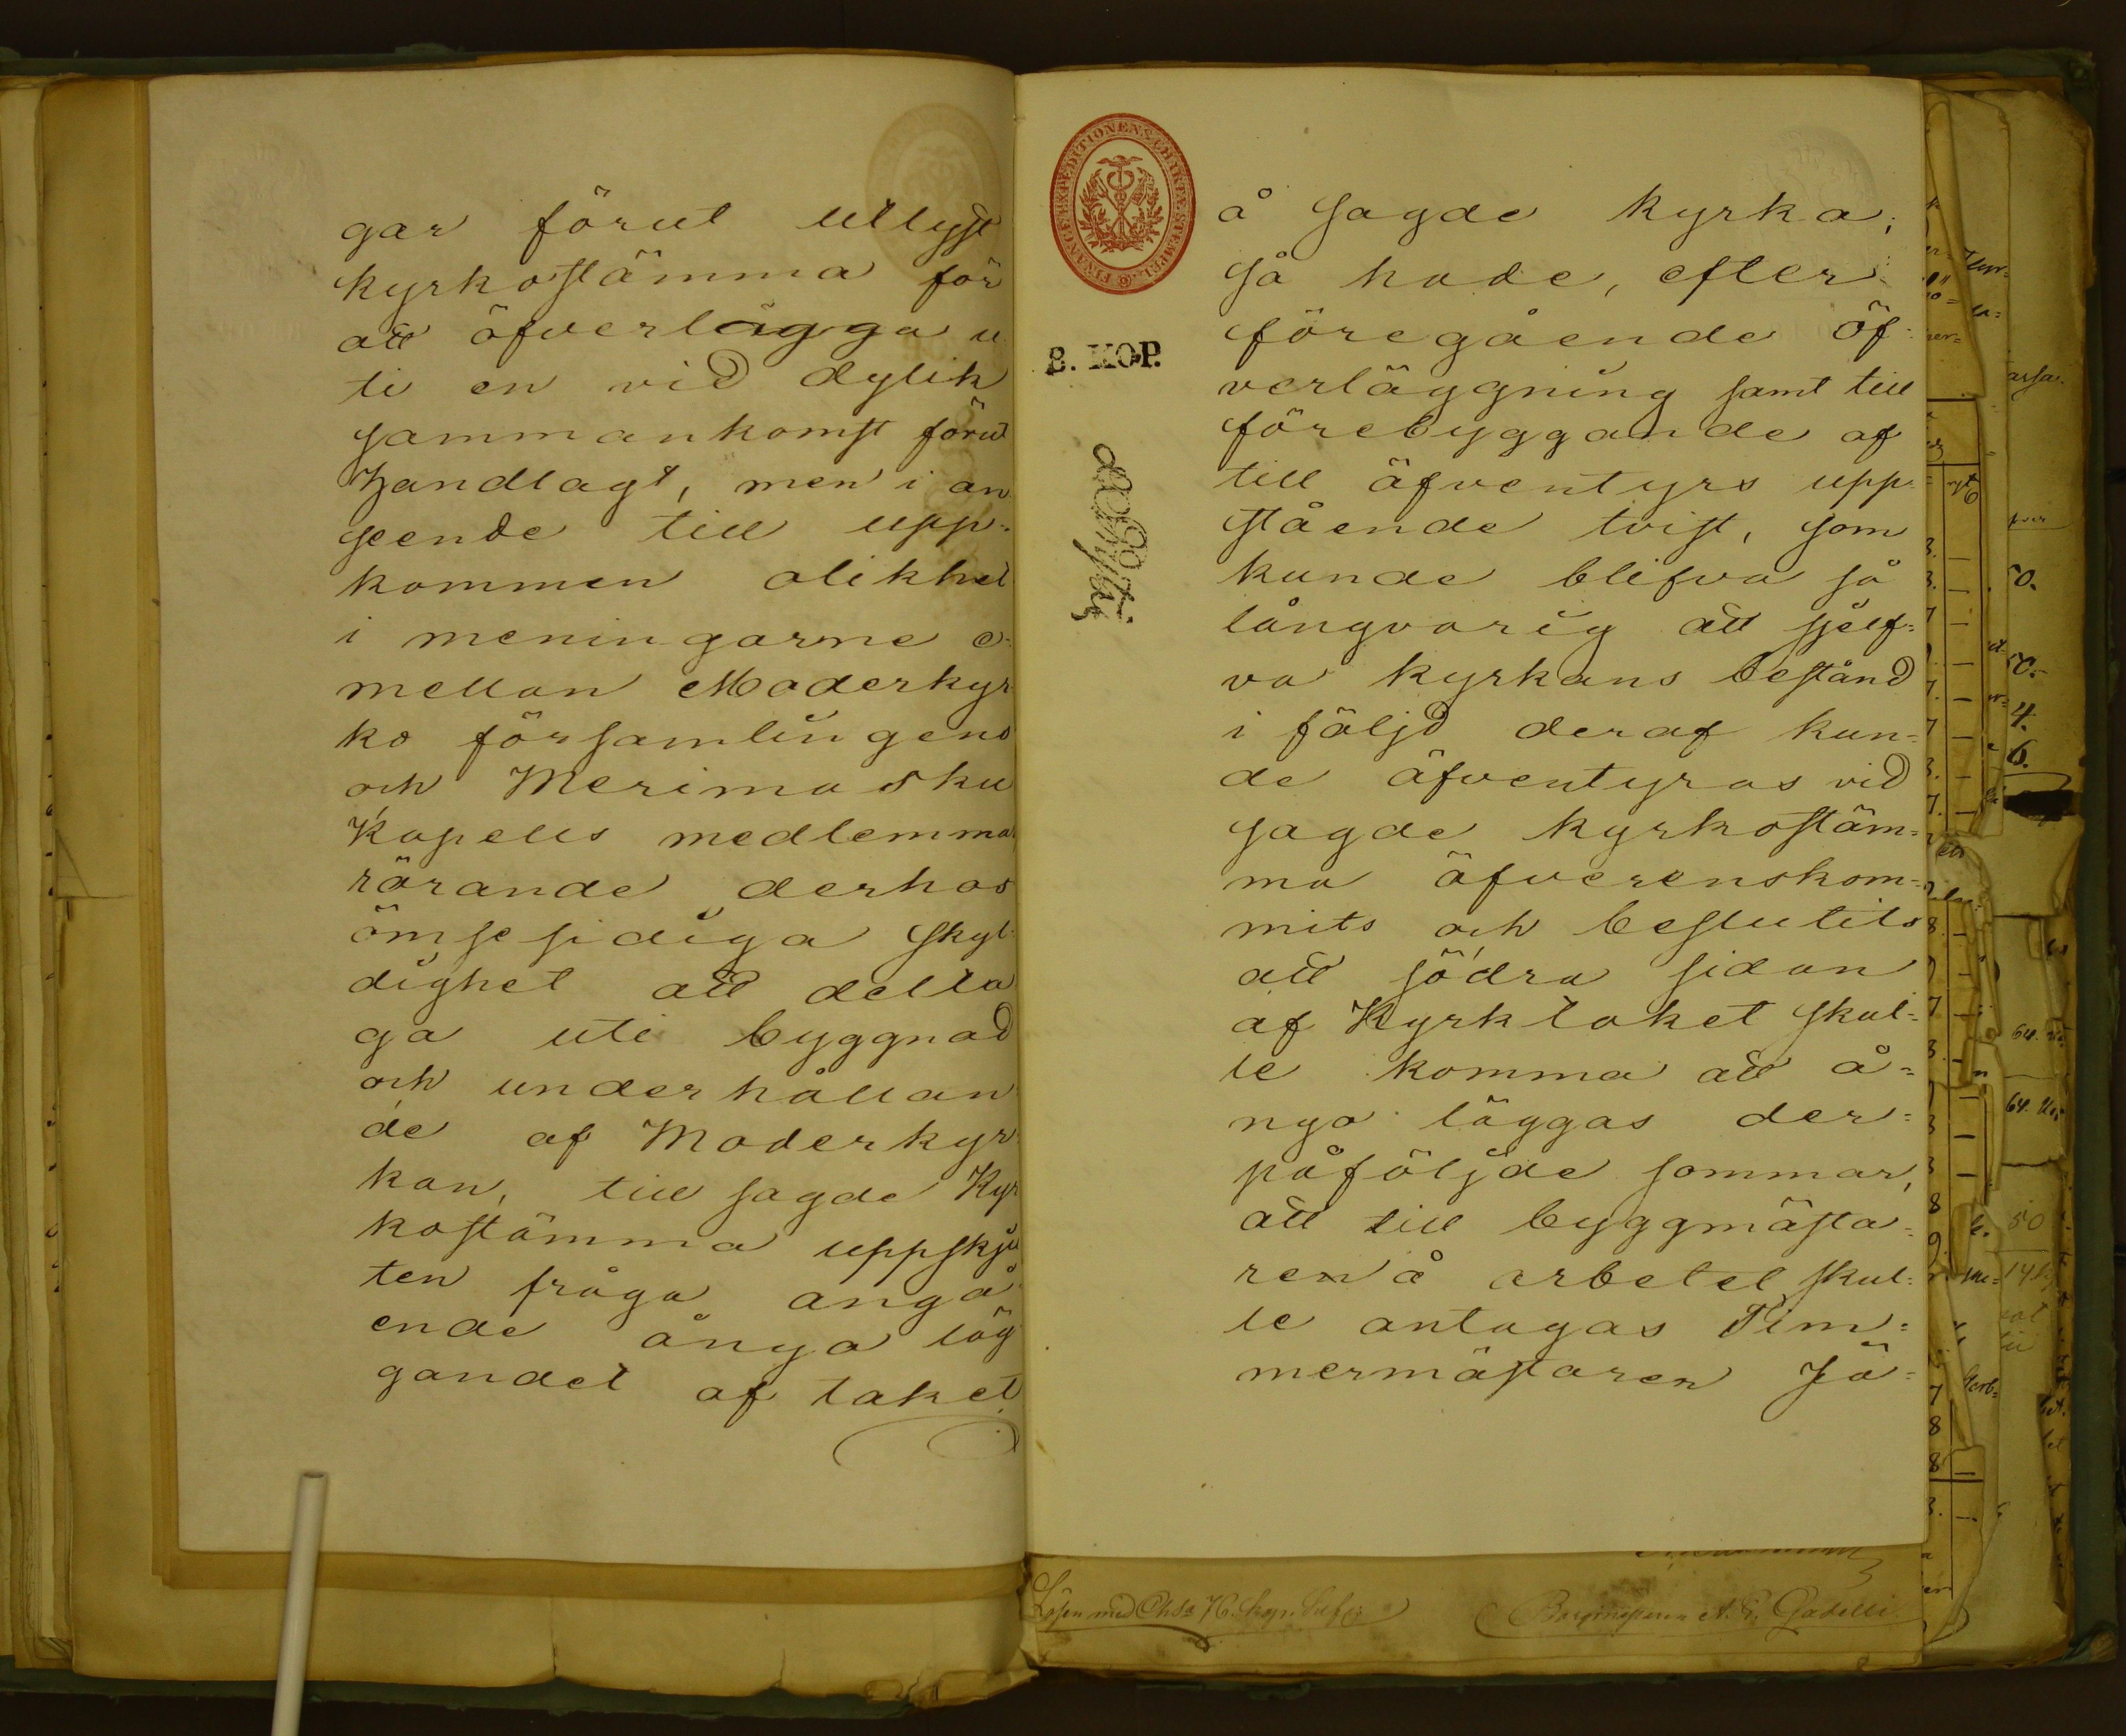 gar förut utlyst
kyrkostämma för
att öfverlägga u
ti en vid dylik
sammankomst förut
handlagt, men i an
seende till upp-
kommen olikhet
i meningarne e-
mellan Moderkyr
ko församlingens
och Merimasku
Kapells medlemma
rörande derhos
ömsesidiga skyl-
dighet att delta
ga uti byggnad
och underhållan
de af Moderkyr
kan, till sagde Kyr
kostämma uppskju
ten fråga angå
ende å nya läg
gandet af taket
FINANCE-EXPEDITIONENS CHARTÆ-STEMPEL
8. KOP.
å sagde kyrka;
så hade, efter
föregående öf-
verläggning samt till
förebyggande af
till äfventyrs upp-
stående tvist, som
kunde blifva så
långvarig att sjelf=
va kyrkans bestånd
i följd deraf kun=
de äfventyras vid
sagde kyrkostäm=
ma öfverenskom=
mits och beslutits
att södra sidan
af Kyrktaket skul=
le komma att å=
nyo läggas der=
påföljde sommar,
att till byggmästa=
ren å arbetet skul=
le antagas Tim=
mermästaren Jo=
Lösen med Ch.Sa 76. kop. Silfver
Borgmästaren A. G. Gadelli